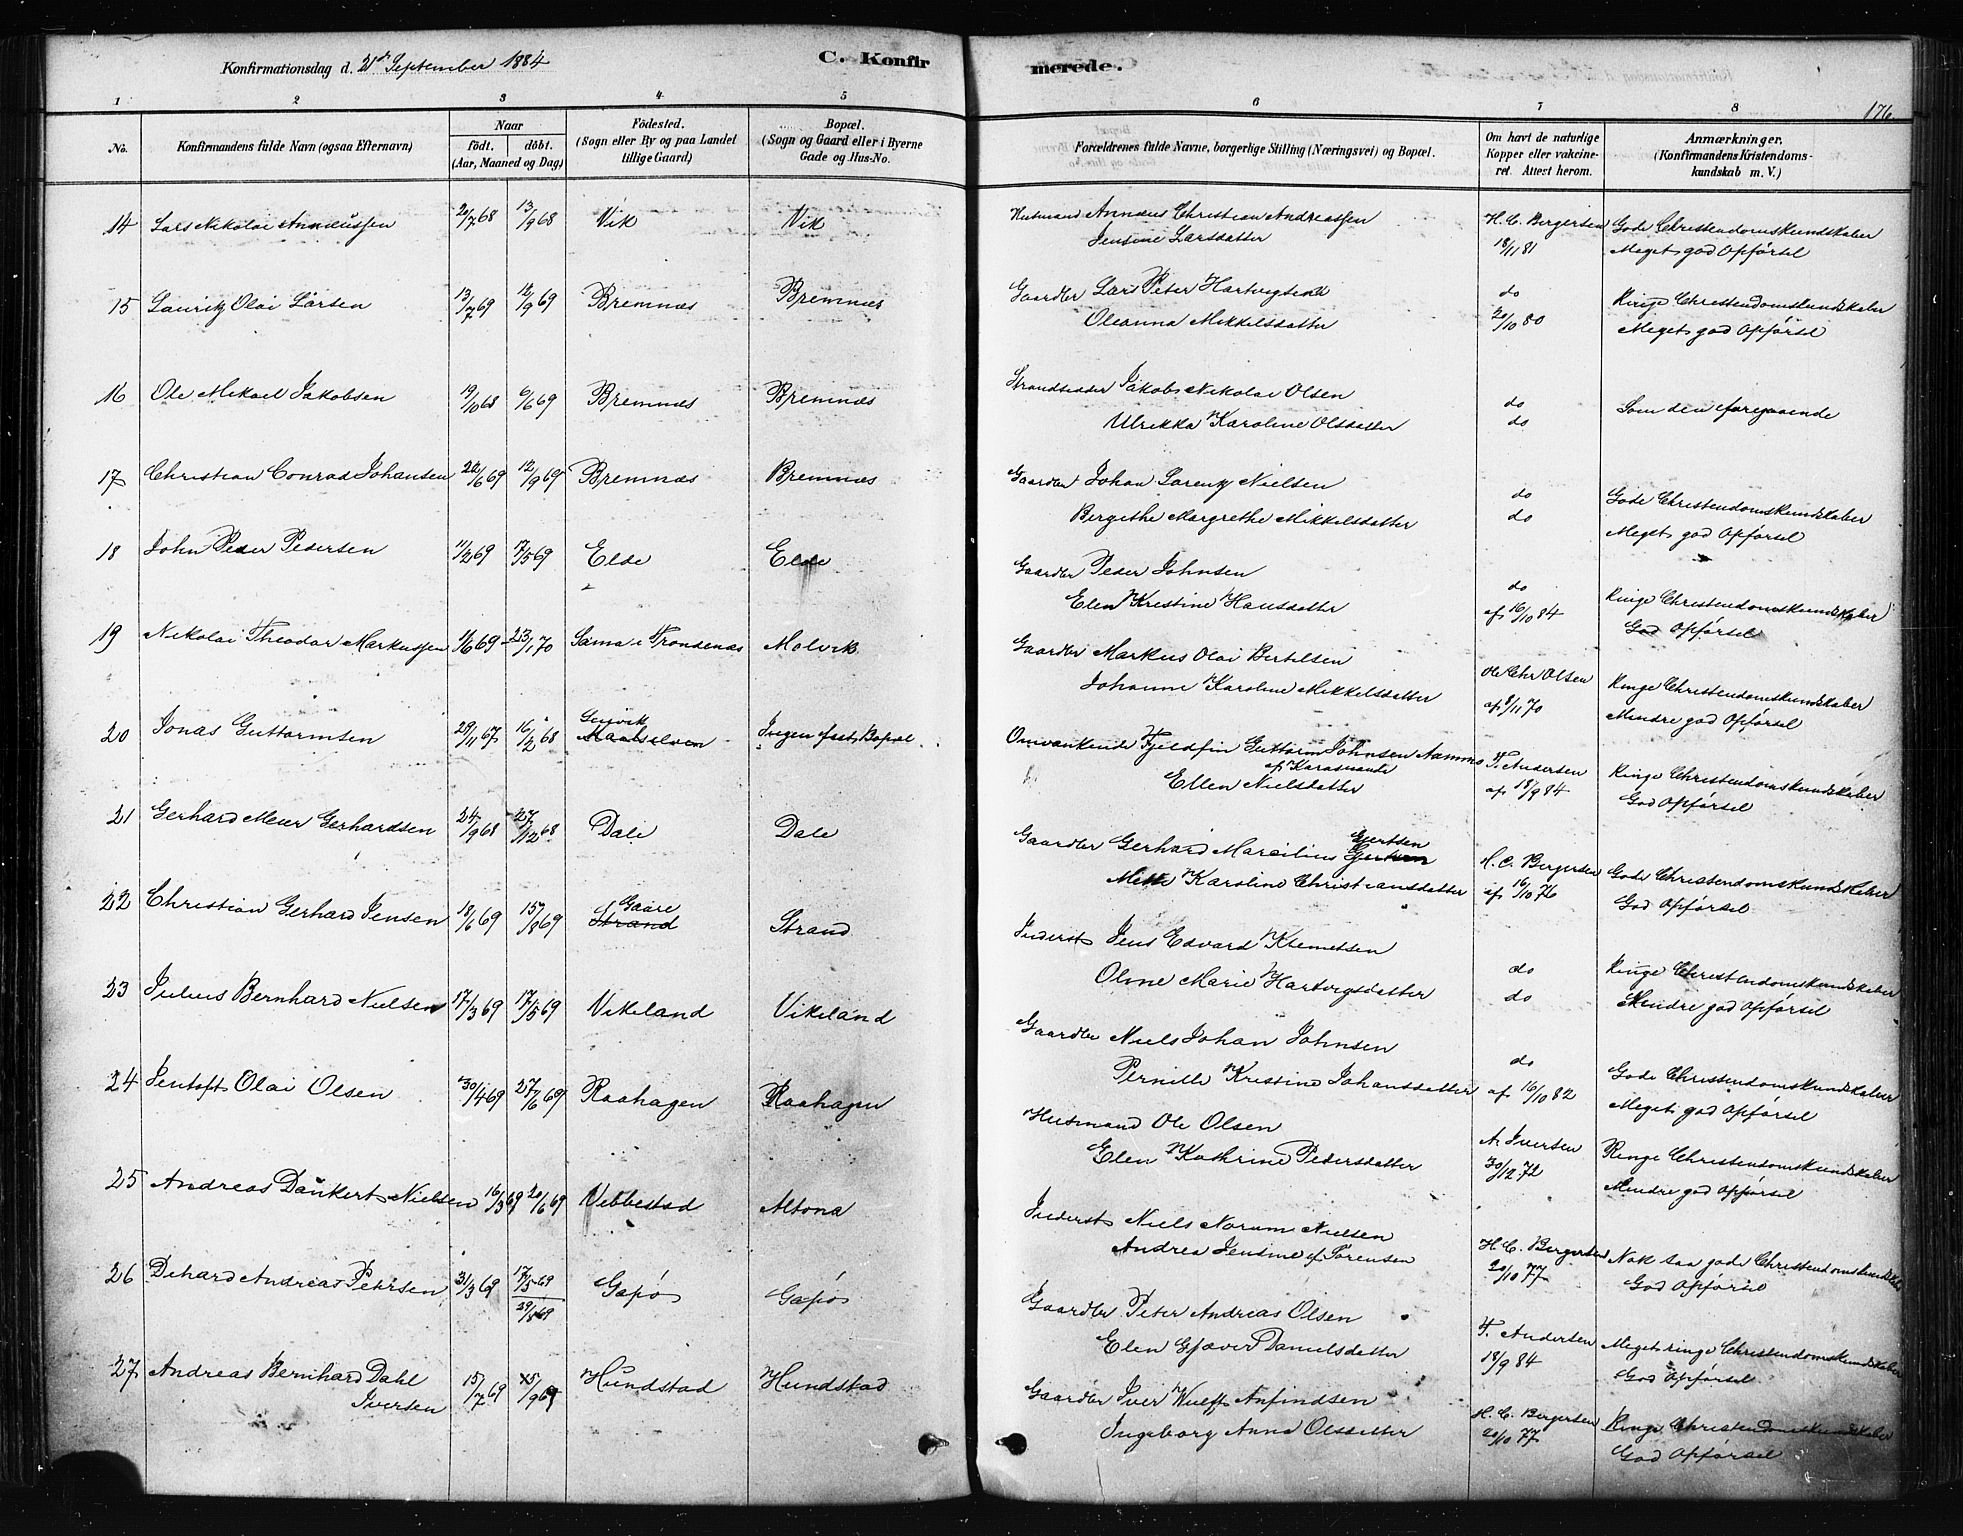 Konfirmationsdag d. 21de September 1884
C. Konfirmerede.
176
1 2 3 4 5 6 7 8
No. Konfirmandens fulde Navn (ogsaa Efternavn) Naar födt. döbt. (Aar, Maaned og Dag) Födested. (Sogn eller By og paa Landet tillige Gaard) Bopæl. (Sogn og Gaard eller i Byerne Gade og Hus-No.
Forældrenes fulde Navne, borgerlige Stilling (Næringsvei) og Bopæl. Om havt de naturlige Kopper eller vakcineret. Attest herom. Anmærkninger, (Konfirmandens Kristendomskundskab m. V.)
14 Lars Nikolai Annæussen 20/7 68 13/9 68 Vik Vik
Husmand Annæus Christian Andreassen H. C. Bergersen Gode Christendomskundskaber
Jensine Larsdatter 18/11 81 Meget god Opførsel
15 Lauritz Olai Larsen 13/7 69 12/9 69 Bremnæs Bremnæs
Gaardbr Lars Peter Hartvigsen do Ringe Christendomskundskaber
Oleanna Mikkelsdatter 20/10 80 Meget god Opførsel
16 Ole Mikael Jakobsen 19/10 68 6/6 69 Bremnæs Bremnæs
Strandsidder Jakob Nikolai Olsen do Som den foregaaende
Ulrikka Karoline Olsdatter do
17 Christian Conrad Johansen 22/6 69 12/9 69 Bremnæs Bremnæs
Gaardbr Johan Lorentz Nielsen do Gode Christendomskundskaber
Bergithe Margrethe Mikkelsdatter do Meget god Opførsel
18 John Peder Pedersen 11/2 69 17/5 69 Elde Elde
Gaardbr Peder Johnsen do Ringe Christendomskundskaber
Elen Kristine Hansdatter af 16/10 84 God Opførsel
19 Nikolai Theodor Markussen 1/6 69 23/1 70 Sama i Trondenæs Molvik
Gaardbr Markus Olai Bertelsen Ole Chr Olsen Ringe Christendomskundskaber
Johanne Karoline Mikkelsdatter af 9/11 70 Mindre god Opførsel
20 Jonas Guttormsen 29/11 67 16/2 68 Maalselven Ingen fast Bopæl
Omvankende Fjeldfin Guttorm Johnsen Aammo T. Andersen Ringe Christendomskundskaber
af Karasuando
Ellen Nielsdatter af 18/9 84 God Opførsel
21 Gerhard Meier Gerhardsen 24/9 68 27/12 68 Dale Dale
Gaardbr Gerhard Marcilius Gjertsen H. C. Bergersen Gode Christendomskundskaber
Mette Karoline Christiansdatter af 16/10 76 God Opførsel
22 Christian Gerhard Jensen 18/6 69 15/8 69 Gaare Strand Strand
Inderst Jens Edvard Klemetsen do Ringe Christendomskundskaber
Oline Marie Hartvigsdatter do Mindre god Opførsel
23 Julius Bernhard Nielsen 17/3 69 17/5 69 Vikeland Vikeland
Gaardbr Niels Johan Johnsen do Gode Christendomskundskaber
Pernille Kristine Johansdatter af 16/10 82 Meget god Opførsel
24 Jentoft Olai Olsen 30/4 69 27/6 69 Raahagen Raahagen
Husmand Ole Olsen A. Iversen Ringe Christendomskundskaber
Elen Kathrine Pedersdatter 30/12 72 Mindre god Opførsel
25 Andreas Dankert Nielsen 16/3 69 20/6 69 Vebbestad Altona
Inderst Niels Norum Nielsen H. C. Bergersen Nok saa gode Christendomskundskaber
Andrea Jensine f. Sørensen 20/10 77 God Opførsel
26 Dehard Andreas Petersen 31/3 69 17/5 69 29/8 69 Gapø Gapø
Gaardbr Peter Andreas Olsen T. Andersen Meget ringe Christendomskundskaber
Elen Gjæver Danielsdatter 18/9 84 God Opførsel
27 Andreas Bernhard Dahl Iversen 15/7 69 15/9 69 Hundstad Hundstad
Gaardbr Iver Wulff Anfindsen H. C. Bergersen Ringe Christendomskundskaber
Ingeborg Anna Olsdatter 20/10 77 God Opførsel